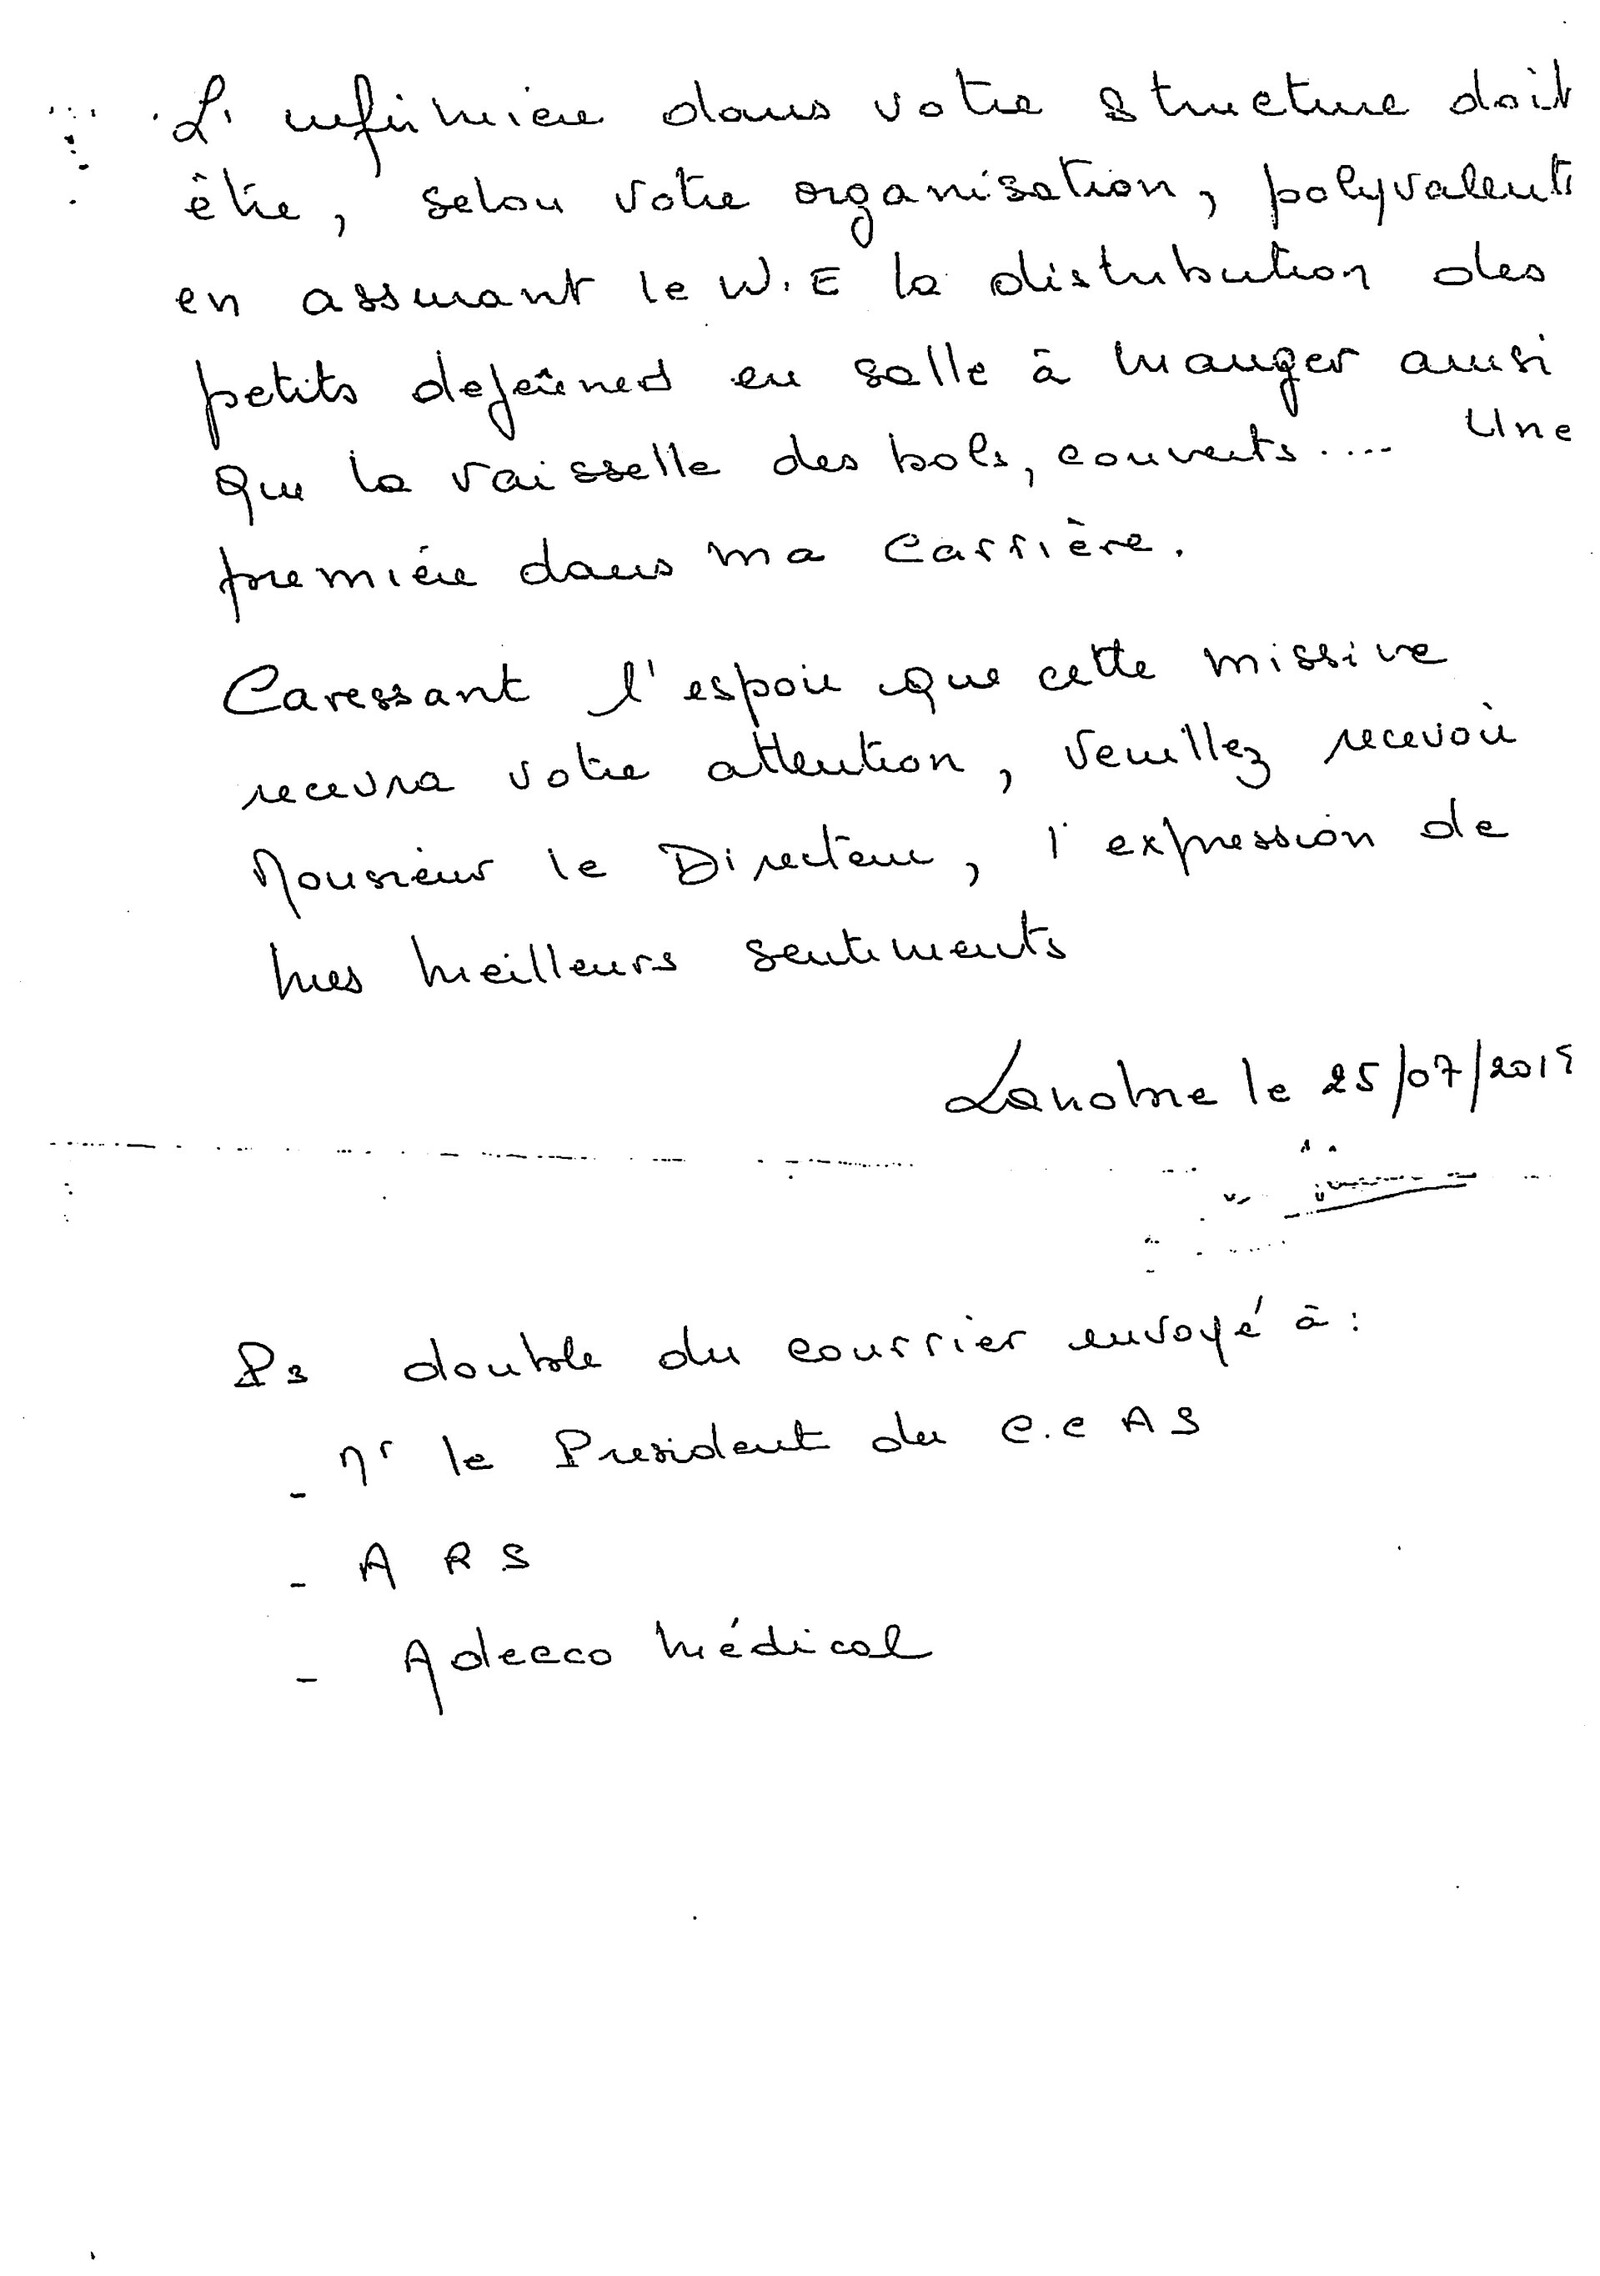 L'infirmière dans votre structure doit
être, selon votre organisation, polyvalente
en assurant le W.E la distribution des
petits dejeûners en salle à manger ainsi
que la vaisselle des bols, couverts.... Une
première dans ma carrière.
Caressant l'espoir que cette missive
recevra votre attention, veuillez recevoir
Monsieur le Directeur, l'expression de
mes meilleurs sentiments
Lanobre le 25/07/2019
Ps double du courrier envoyé à :
- Mr le President du C.C A S
- A R S
- Adecco Médical